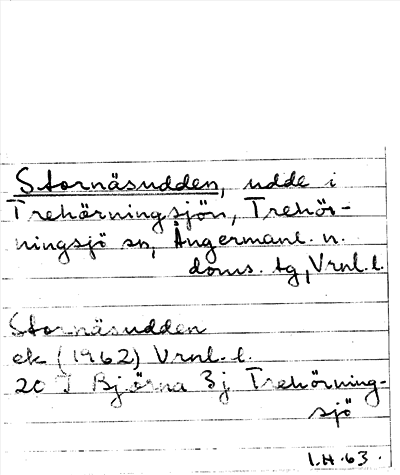 Stornäsudden, udde i
Trehörningsjön, Trehör-
ningsjö sn, Ångermanl. n.
doms. tg, Vrnl. l.
Stornäsudden
ek (1962) Vrnl. l.
20 J Björna 3j Trehörning-
sjö
I.H. 63.